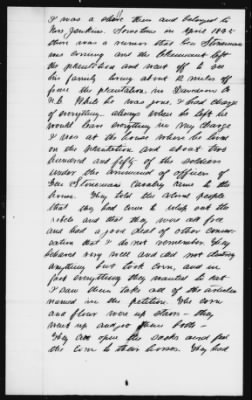 I was a slave then and belonged to
Mrs Jenkins. Sometime in April 1865
there was a rumor that Gen Stoneman
was coming and the Claimant left
the plantation and went off to see
his family living about 12 miles off
from the plantation in Davidson Co
N.C. While he was gone, I had charge
of everything always when he left he
would leave everything in my charge
I was at the house where he lived
on the plantation and about two
hundred and fifty of the soldiers
under the command of officers of
Gen Stoneman Cavalry came to the
house. They told the colored people
that they had come to whip out the
rebels and that they were all free
and had a good deal of other conver-
sation that I do not remember. They
behaved very well and did not destroy
anything but took corn, and in
fact everything they wanted to eat
I saw them take all of the articles
named in the petition. The corn
and flour were up stairs - they
went up and got them both -
They cut open the sacks and fed
the corn to their horses. They had